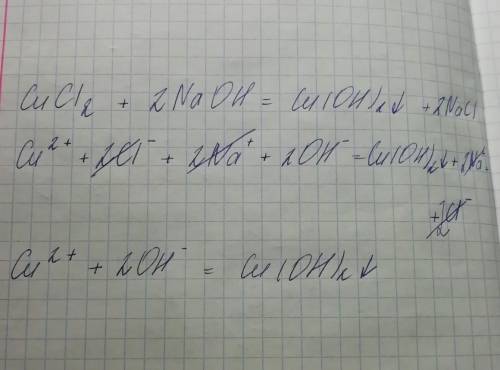 CuCl₂ + 2NaOH = Cu(OH)₂↓ + 2NaCl
Cu²⁺ + 2Cl⁻ + 2Na⁺ + 2OH⁻ = Cu(OH)₂↓ + 2Na⁺
+ 2Cl⁻
Cu²⁺ + 2OH⁻ = Cu(OH)₂↓